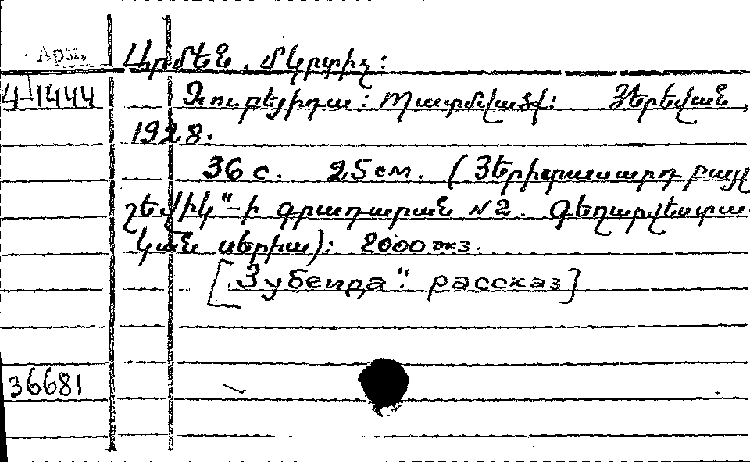 Арм.
Արմեն, Մկրտիչ:
4-1444 Զուբեյիդա: Պատմվածք: Յերեվան,
1928.
36 с. 25 см. (Յերիտասարդ բայլ
շեվիկ"-ի գրադարան N2. Գեղարվեստա
կան սերիա): 2000 экз.
[„Зубеида": рассказ]
36681